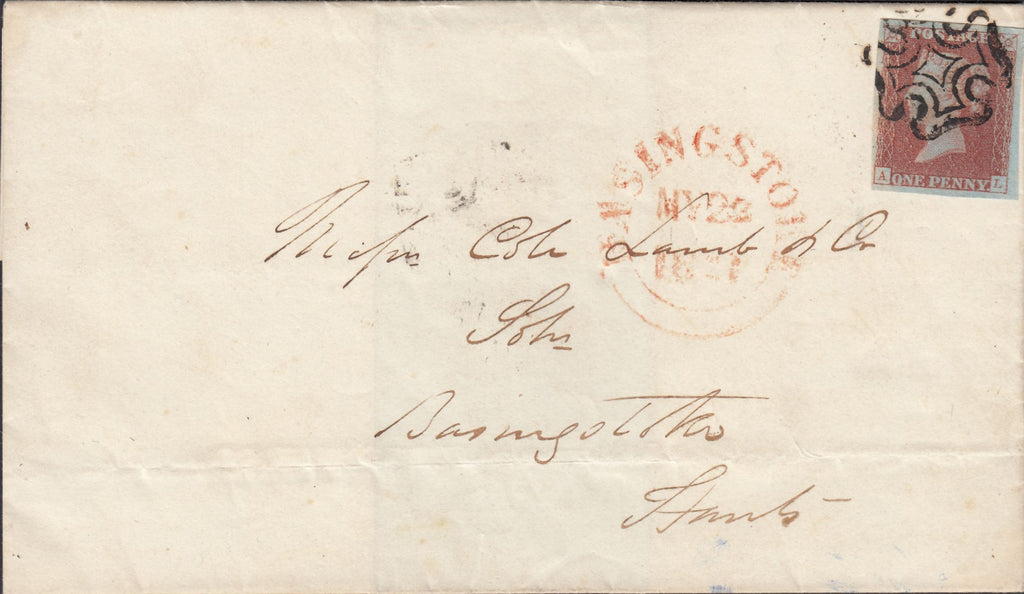 POSTAGE
A ONE PENNY L
BASINGSTOKE
MY 22
Messrs Cole Lamb & Co
Solrs
Basingstoke
Hants